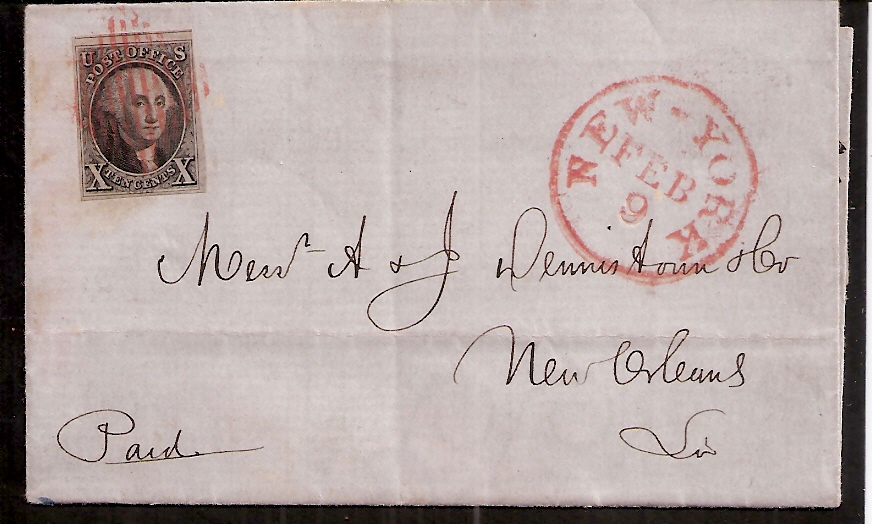 U S
POST OFFICE
X TEN CENTS X
NEW-YORK
FEB
9
Messrs A & J Dennistoun & Co
New Orleans
La
Paid